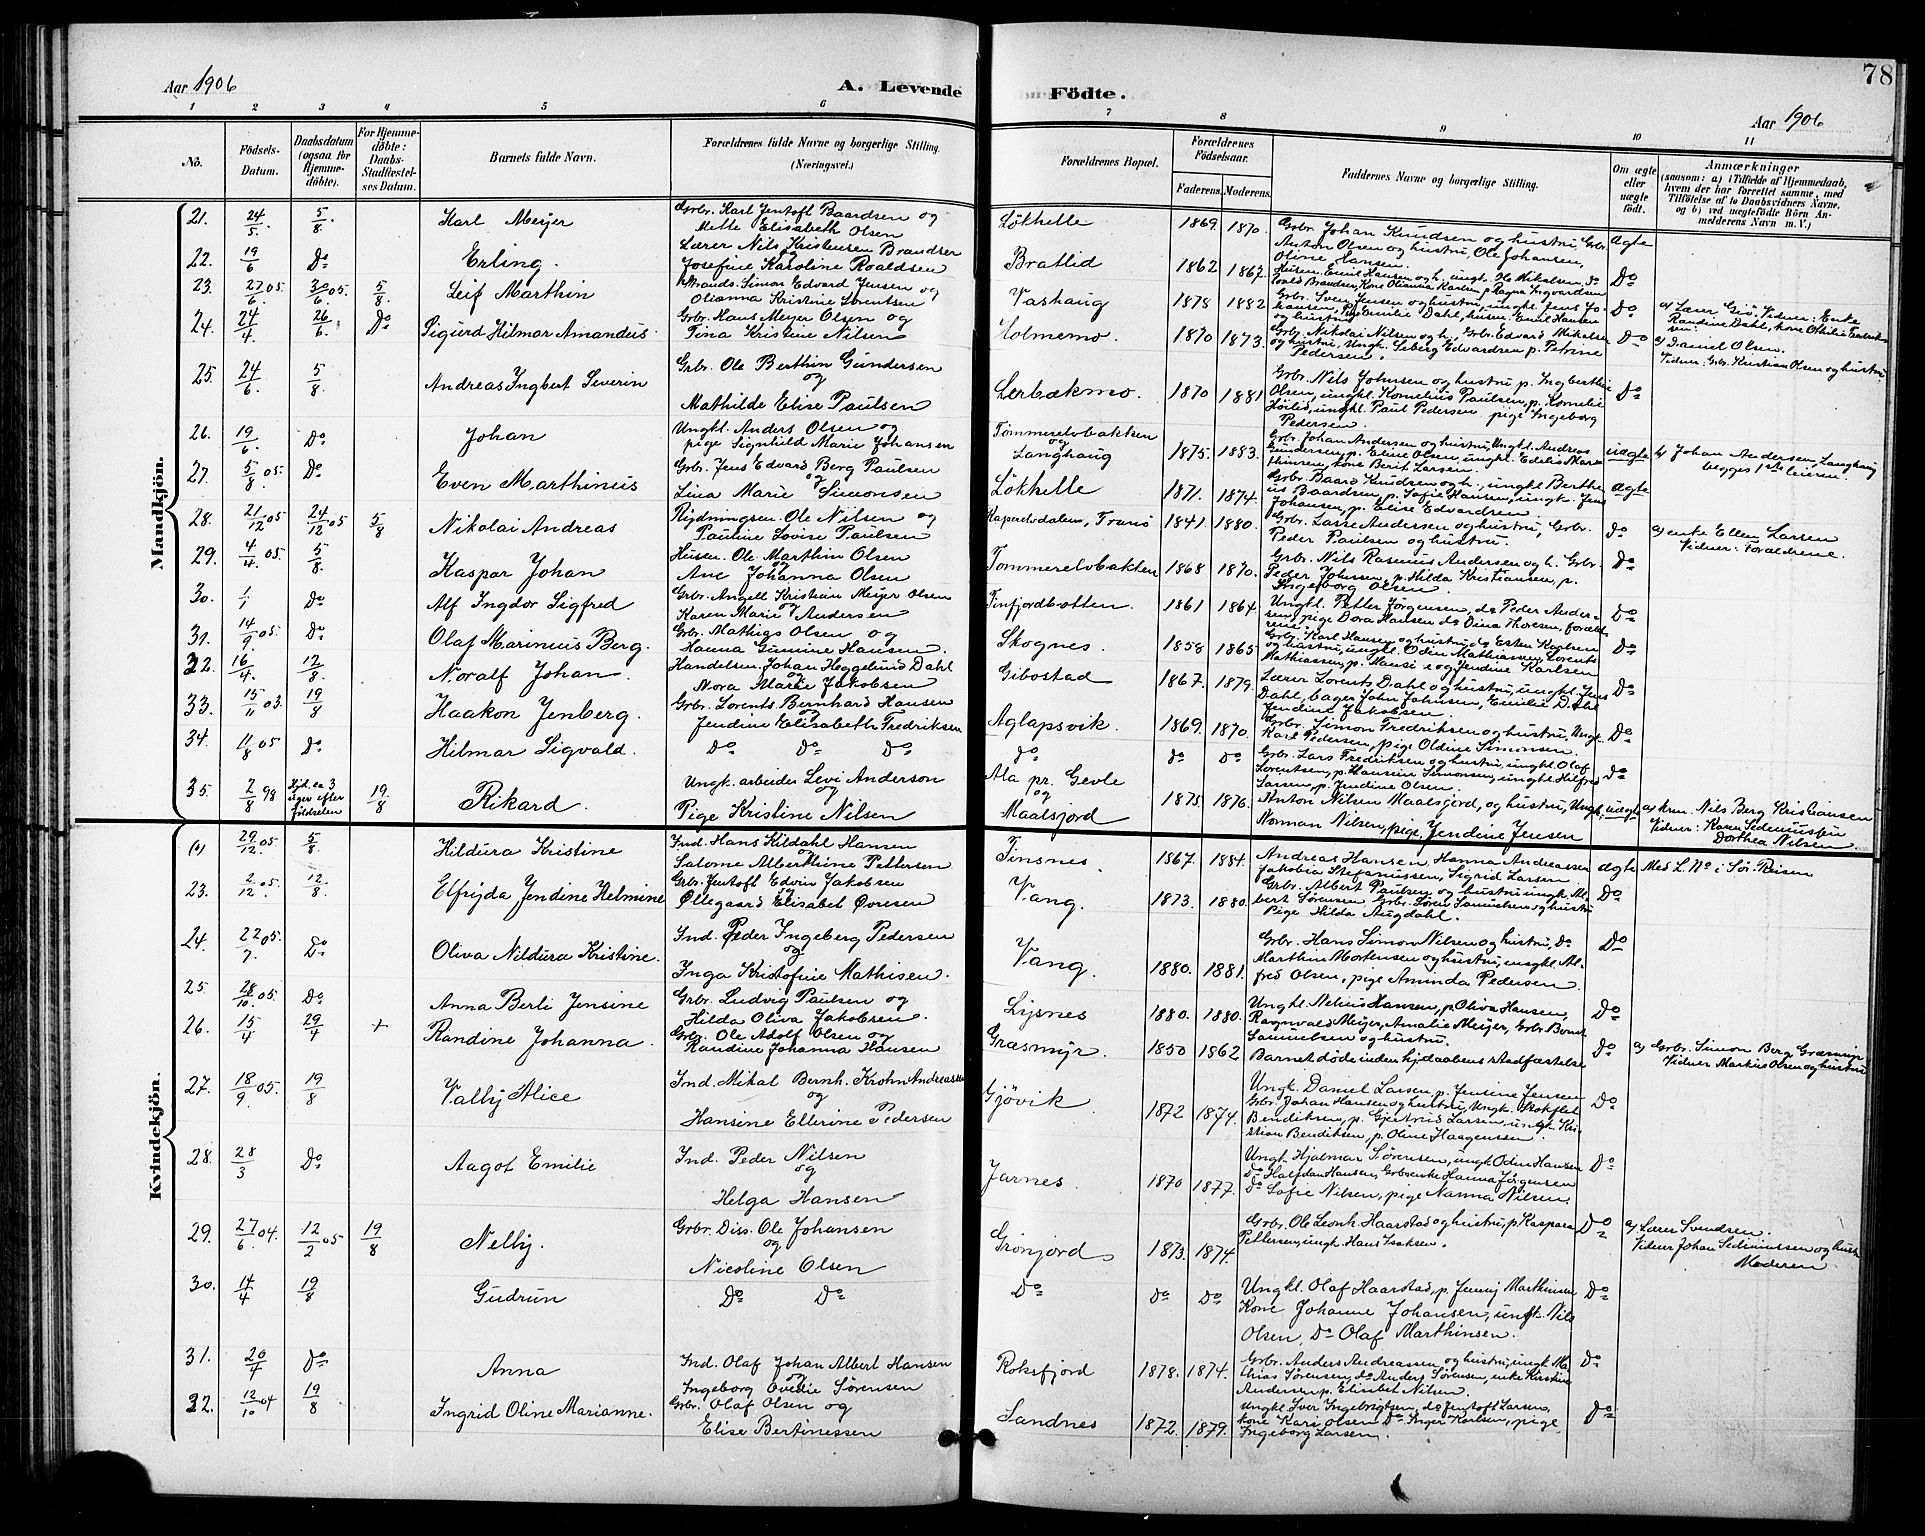 Aar 1906
A. Levende
Födte.
78
Aar 1906
1 2 3 4 5 6 7 8 9 10 11
No.
Födsels-Datum.
Daabsdatum (ogsaa for Hjemmedöbte).
For Hjemmedöbte: Daabs-Stadfæstelses Datum.
Barnets fulde Navn.
Forældrenes fulde Navne og borgerlige Stilling. (Næringsvei.)
Forældrenes Bopæl.
Forældrenes Födselsaar.
Faderens. Moderens.
Faddernes Navne og borgerlige Stilling.
Om ægte eller uægte födt.
Anmærkninger
(saasom: a) i Tilfælde af Hjemmedaab,
hvem der har forrettet samme, med
Tilföielse af to Daabsvidners Navne.
og b) ved uægtefödte Börn Anmelderens Navn m. V.)
Mandkjön.
21. 24/5. 5/8. Karl Meyer Grbr. Karl Jentoft Baardsen og Mette Elisabeth Olsen Løkhelle 1869. 1870. Grbr. Johan Knudsen og hustru, Grbr. Anton Olsen og hustru Ole Johansen, Oline Hansen. ægte
22. 19/6 Do Erling. Lærer Nils Kristensen Brandser og Josefine Karoline Roaldsen Bratlid 1862 1867. Do
23. 27/6 05. 30/6 05. 5/8. Leif Marthin Simon Edvard Jensen og Olianna Kristine Lorentsen Vashaug 1878 1882 Do a) Lærer Vidner: Enke Randine Dahl, kone
24. 24/4. 26/6 Do Sigurd Hilmar Amandus. Grbr. Hans Meyer Olsen og Tina Kristine Nilsen Holmemo. 1870 1873. Grbr. Nikolai Nilsen og h., Grbr. Edvard Mikelsen og hustru, Ungk. Seberg Edvardsen p. Petrine Pedersen. Do a) Daniel Olsen. Vidner: Grbr. Kristian Olsen og hustru.
25. 24/6. 5/8 Andreas Ingbert Severin Grbr. Ole Berthin Gundersen og Mathilde Elise Paulsen Lerbækmo. 1870 1881 Grbr. Nils Johnsen og hustru p. Ingberthine Olsen, ungkl. Kornelius Paulsen, p. Kornelie Høilid, ungkl. Paul Pedersen pige Ingeborg Pedersen. Do
26. 19/6. Do Johan Ungkl. Anders Olsen og pige Signhild Marie Johansen Tømmerelvbakken og Langhaug 1875. 1883. Grbr. Johan Andersen og hustru, Ungkl. Andreas Gundersen, p. Eline Olsen, ungkl. Edelis Marthinsen, kone Berit Larsen. uægte b) Johan Andersen, Langhaug begges 1ste leierm.
27. 5/8 05. Do Even Marthinus Grbr. Jens Edvard Berg Paulsen og Lina Marie Simonsen Løkhelle 1871. 1874. Grbr. Baard Knudsen og h., ungkl Berthe us Baardsen, p. Sofie Hansen, ungk. Jens Johansen, p. Elise Edvardsen. ægte
28. 21/12 05 24/12 05 5/8 Nikolai Andreas Rydningsm. Ole Nilsen og Pauline Lovise Paulsen Kapervdalen, Tranö 1841. 1880. Grbr. Lars Andersen og hustru, Grbr. Peder Paulsen og hustru. Do a) enke Ellen Larsen Vidner: Forældrene.
29. 4/4 05. 5/8. Kaspar Johan Husm. Ole Marthin Olsen og Ane Johanna Olsen Tømmerelvbakken 1868 1870. Grbr. Nils Rasmus Andersen og h. Grbr. Peder Johnsen, p. Hilda Kristiansen, p. Ingeborg Olsen. Do
30. 1/1 Do Alf Ingdor Sigfred Grbr. Angell Kristian Meyer Olsen og Karen Marie Andersen Finfjordbotten. 1861 1864. Ungkl. Petter Jörgensen, do Peder Andersen, pige Dora Hansen do Dina Thoresen, forældrene. Do
31. 14/9 05. Do Olaf Marinius Berg. Grbr. Mathias Olsen og Hanna Gunnine Hansen. Skognes. 1858 1865 Grbr. Karl Hansen og hustru, Do Esten Karlsen og hustru, ungkl. Odin Mathiassen, Lorents Mathiassen, p. Hansine og Jendine Karlsen Do
32. 16/4 12/8. Noralf Johan Handelsm. Johan Heggelund Dahl og Nora Marie Jakobsen Gibostad 1867. 1879. Lærer Lorents Dahl og hustru, ungkl. Jens Dahl, bager John Johnsen, Emilie Dahl, Jendine Jakobsen Do
33. 15/11 03. 19/8 Haakon Jenberg. Grbr. Lorents Bernhard Hansen og Jendine Elisabeth Fredriksen Aglapsvik. 1869. 1870. Grbr. Simon Fredriksen og hustru, Ungk. Karl Pedersen, pige Oldine Simonsen. Do
34. 11/8 05 Do Hilmar Sigvald. Do Do Do do do Do Grbr. Lars Fredriksen og hustru, ungkl. Olaf Lorentsen, p. Hansine Simonsen, ungkl Hilfred Larsen, p. Jendine Olsen. Do
35. 2/8 98 Hjd. ca 3 uger efter födselen 19/8 Rikard. Ungk. arbeider Levi Anderson og Pige Kristine Nilsen Ala pr. Gevle og Maalsjord 1875. 1876. Anton Nilsen Maalsjord, og hustru, Ungk. Norman Nilsen, pige, Jendine Jensen uægte a) Nils Berg Kristiansen Vidner: Karen Sedeniussen Dorthea Nilsen
Kvindekjön.
(1) 29/12 05 5/8. Hildura Kristine Ind. Hans Kildahl Hansen og Salome Alberthine Pettersen Finsnes 1867. 1884. Andreas Hansen, Hanna Andreassen Jakobia Stefanussen, Sigrid Larsen ægte Med L. No i Sör-Reisen
23. 2/12 05. 12/8 Elfrijda Jendine Helmine Grbr. Jentoft Edvin Jakobsen og Øllegaard Elisabet Øvresen Vang. 1873. 1880. Grbr. Albert Paulsen og hustru ungk. Albert Sørensen, Grbr. Søren Samuelsen og hustru Pige Hilda Augdahl. Do
24. 22/7 05. Do Oliva Nildura Kristine. Ind. Peder Ingeberg Pedersen og Inga Kristofine Mathisen. Vang. 1880. 1881. Grbr. Hans Simon Nilsen og hustru, Do Marthin Mortensen og hustru, ungkl. Alfred Olsen, pige Aminda Pedersen. Do
25. 28/10 05. Do Anna Berli Jensine Grbr. Ludvig Paulsen og Hilda Oliva Jakobsen. Lysnes 1880. 1880. Ungkl. Nelius Hansen, p. Oliva Hansen, Ragnvald Meyer, Amalie Meyer, Grbr. Bernt Samuelsen og hustru. Do
26. 15/4 29/4 + Randine Johanna. Grbr. Ole Adolf Olsen og Randine Johanna Hansen Græsmyr. 1850 1862 Barnet døde inden hjdaabens stadfæstelse Do a) Grbr. Simon Berg Græsmyr Vidner Markus Olsen og hustru
27. 18/9 05. 19/8 Valby Alice Ind. Mikal Bernh. Krohn Andreassen og Hansine Ellerine Pedersen Gjövik 1872 1874. Ungk. Daniel Larsen, p. Jensine Jensen Grbr. Johan Hansen og hustru, Ungk. Stokflet Bendiksen, p. Gjertrud Larsen, ungk. Kristian Bendiksen, p. Oline Haagensen. Do
28. 28/3 Do Aagot Emilie Ind. Peder Nilsen og Helga Hansen Jarnes. 1870 1877. Ungk. Hjalmar Sørensen, ungk Odin Hansen Do Halfdan Hansen, Grbrenke Hanna Jörgensen Do Sofie Nilsen, pige Nanna Nilsen. Do
29. 27/6 04. 12/2 05 19/8 Nelly. Grbr. Diss. Ole Johansen og Nicoline Olsen Grönjord 1873. 1874. Grbr. Ole Leonh. Haarstad og hustru, p. Kaspara Pettersen, ungk. Hans Isaksen. Do a) Lærer Svendsen. Vidner Johan Sedeniussen og hustru Moderen
30. 14/4 19/8 Gudrun Do Do Do Do Do Ungkl. Olaf Haarstad, p. Jenny Marthinsen Kone Johanne Johansen, ungk. Nils Olsen, Do Olaf Marthinsen. Do
31. 20/4 Do Anna Ind. Olaf Johan Albert Hansen og Ingeborg Ovedie Sörensen Roksfjord 1878. 1874. Grbr. Anders Andreassen og hustru, ungk. Mathias Sørensen, do Anders Sørensen, enke Kirstine Andersen p. Elisabet Nilsen. Do
32. 12/10 04 19/8 Ingrid Oline Marianne. Grbr. Olaf Olsen og Elise Bertinessen Sandnes 1872. 1879. Ungkl. Iver Ingebrigtsen, do Jentoft Larsen, kone Kari Olsen Do Inger Karlsen, pige Ingeborg Larsen. Do